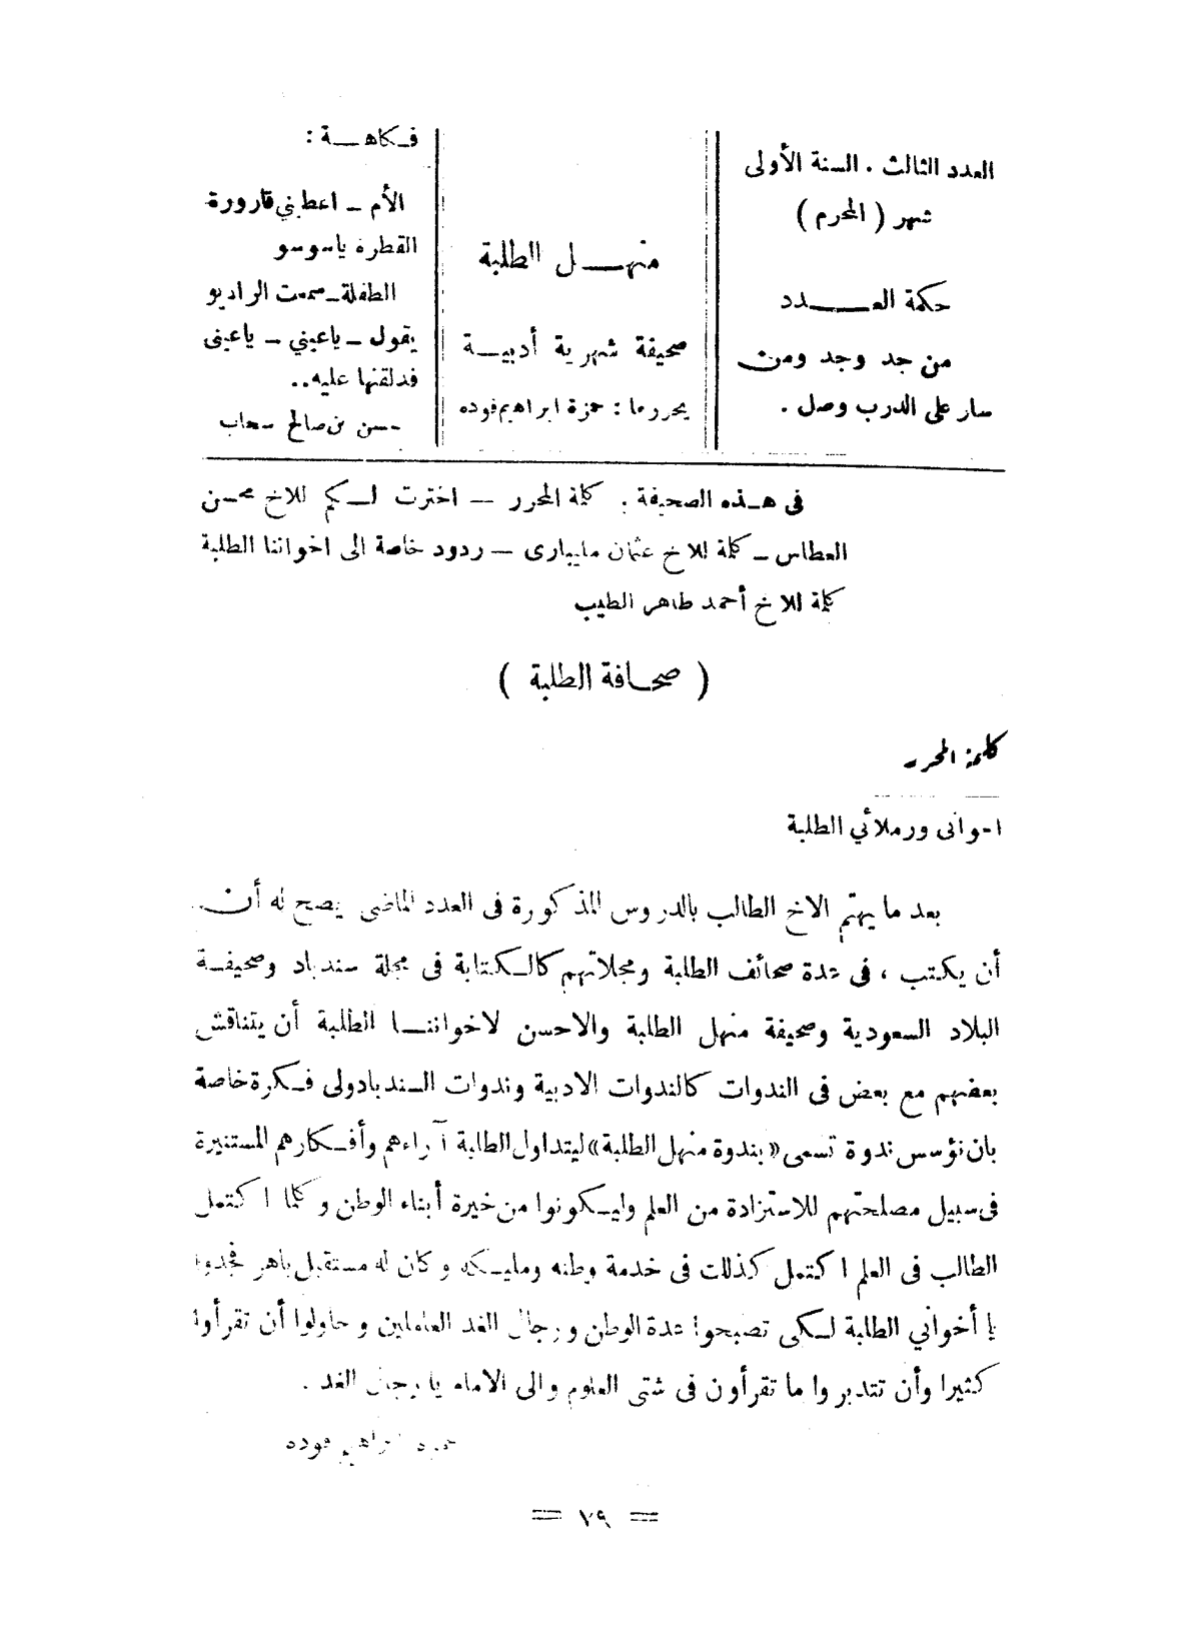 العدد الثالث . السنة الأولى
شهر ( المحرم )
حكمة العـــدد
من جد وجد ومن
سار على الدرب وصل .
منهـــل الطلبة
صحيفة شهرية أدبيـة
يحررها : حمزة ابراهيم فوده
فـكاهـــة :
الأم ــ اعطيني قارورة
القطرة ياسوسو
الطفلة ــ سمعت الراديو
يقول ــ ياعيني ــ ياعينى
فدلقتها عليه..
حسن بن صالح سحاب
فى هـذه الصحيفة . كلمة المحرر — اخترت لـكم للاخ محسن
العطاس ــ كلمة للاخ عثمان مليبارى — ردود خاصة الى اخواننا الطلبة
كلمة للاخ أحمد طاهر الطيب
( صحـافة الطلبة )
كلمة المحرر
اخوانى وزملائي الطلبة
بعد ما يهتم الاخ الطالب بالدروس المذكورة فى العدد الماضى يصح له أن
أن يكتب ، فى عدة صحائف الطلبة ومجلاتهم كالـكتابة فى مجلة سندباد وصحيفـة
البلاد السعودية وصحيفة منهل الطلبة والاحسن لاخواننـا الطلبة أن يتناقش
بعضهم مع بعض فى الندوات كالندوات الادبية وندوات السندباد ولى فـكرة خاصة
بان نؤسس ندوة تسمى «بندوة منهل الطلبة» ليتداول الطلبة آراءهم وأفـكارهم المستنيرة
فى سبيل مصلحتهم للاستزادة من العلم وليـكونوا من خيرة أبناء الوطن وكلما اكتمل
الطالب فى العلم اكتمل كذلك فى خدمة وطنه ومليـكه وكان له مستقبل باهر فجدوا
يا أخواني الطلبة لـكى تصبحوا عدة الوطن ورجال الغد العاملين وحاولوا أن تقرأوا
كثيرا وأن تتدبروا ما تقرأون فى شتى العلوم والى الامام يا رجال الغد .
حمزه ابراهيم فوده
= ٧٩ =